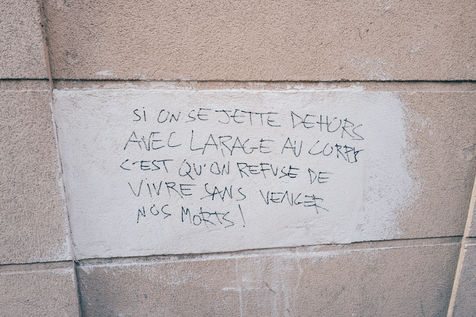 SI ON SE JETTE DEHORS
AVEC LARAGE AU CORPS
C'EST QU'ON REFUSE DE
VIVRE SANS VENGER
NOS MORTS!